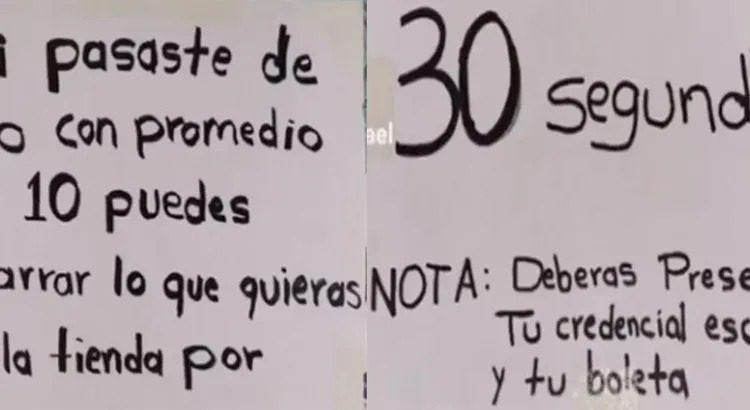 i pasaste de
o con promedio
10 puedes
arrar lo que quieras
la tienda por
30 segund
ael
NOTA: Deberas Prese
Tu credencial esc
y tu boleta